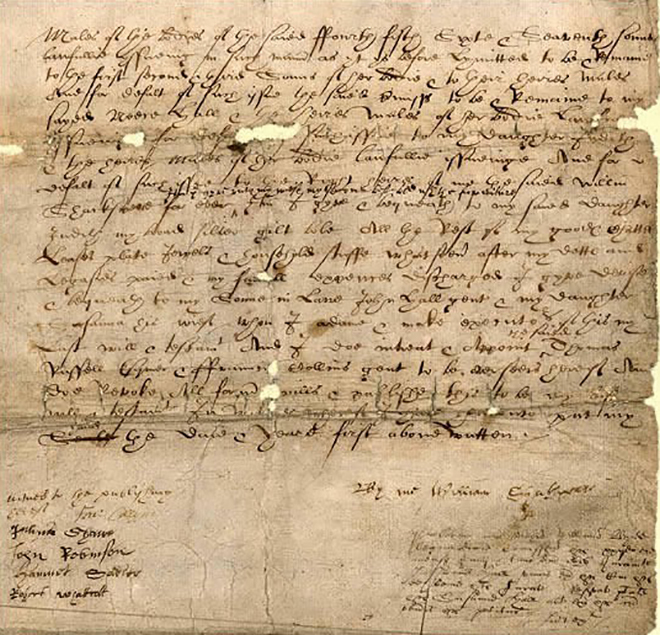 Males of the bodies of the saied ffourth fifth Sixte & Seaventh sonnes
lawfullie yssueing in such manner as yt ys before Lymitted to be & Remaine
to the first second & third Sonns of her bodie & to their heires Males
And for defalt of such issue the said premiss to be & Remaine to my
sayed Neece Hall & the heires Males of her bodie Lawfull
yssueing for defalt such issue to my Daughter Judith
& the heires Males of her bodie lawfullie yssueinge And for
defalt of such issue to the Right heires of me the saied Willm
Itm I gyve unto my wief my second best bed with the furniture
Shackspere for ever Itm I gyve & bequeath to my saied Daughter
Judith my broad silver gilt bole All the Rest of my goods Chattel
Leases plate Jewels & household stuffe whatsoever after my dettes and
Legasies paied & my funerall expences discharged I gyve devise
& bequeath to my Sonne in Lawe John Hall gent & my Daughter
Susanna his wief whom I ordaine & make executors of this my
Last will & testament And I doe intreat & Appoint the saied Thomas
Russell Esquier & ffrauncis Collins gent to be overseers hereof And
doe Revoke All former wills & publishe this to be my last
will & testament In witnes whereof I have hereunto put my
hand Seale the Daie & Yeare first above written
witnes to the publishing
hereof Fra: Collyns
Julyus Shawe
John Robinson
Hamnet Sadler
Robert Whattcott
By me William Shakspeare